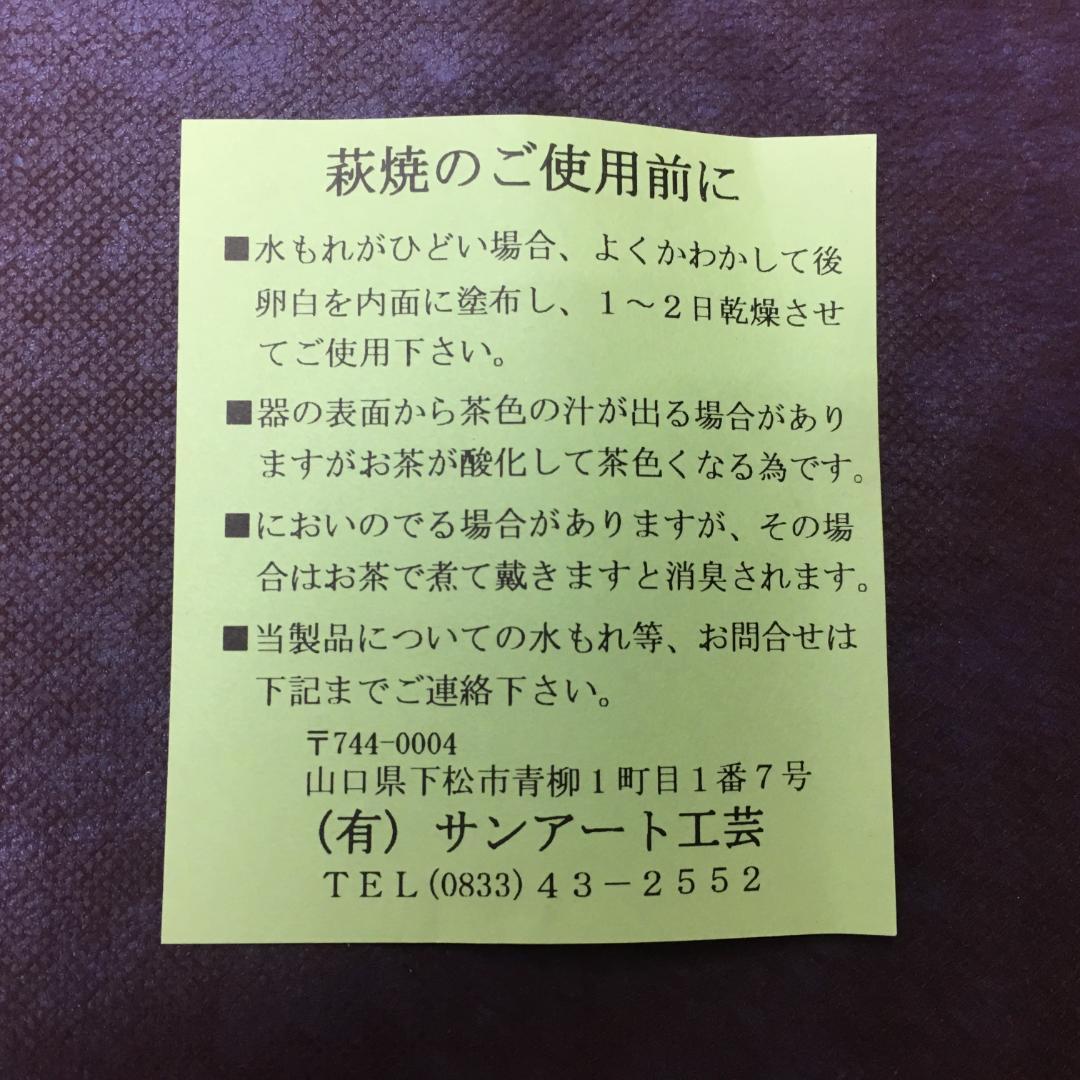 萩焼のご使用前に
■水もれがひどい場合、よくかわかして後
卵白を内面に塗布し、1～2日乾燥させ
てご使用下さい。
■器の表面から茶色の汁が出る場合があり
ますがお茶が酸化して茶色くなる為です。
■においのでる場合がありますが、その場
合はお茶で煮て戴きますと消臭されます。
■当製品についての水もれ等、お問合せは
下記までご連絡下さい。
〒744-0004
山口県下松市青柳1町目1番7号
(有) サンアート工芸
TEL(0833)43－2552